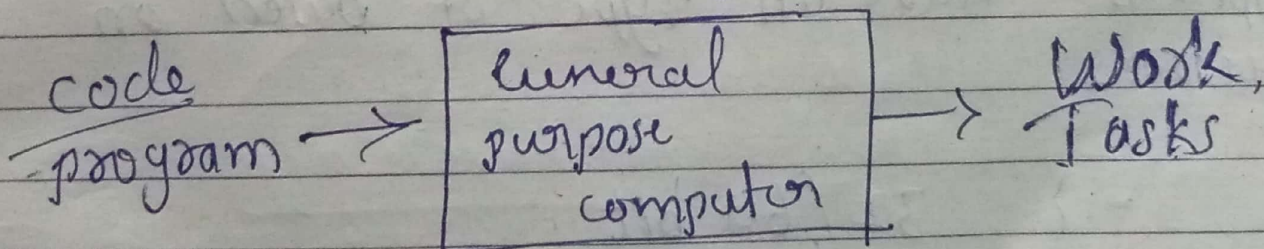 code
program → General
purpose
computer
→ Work,
Tasks